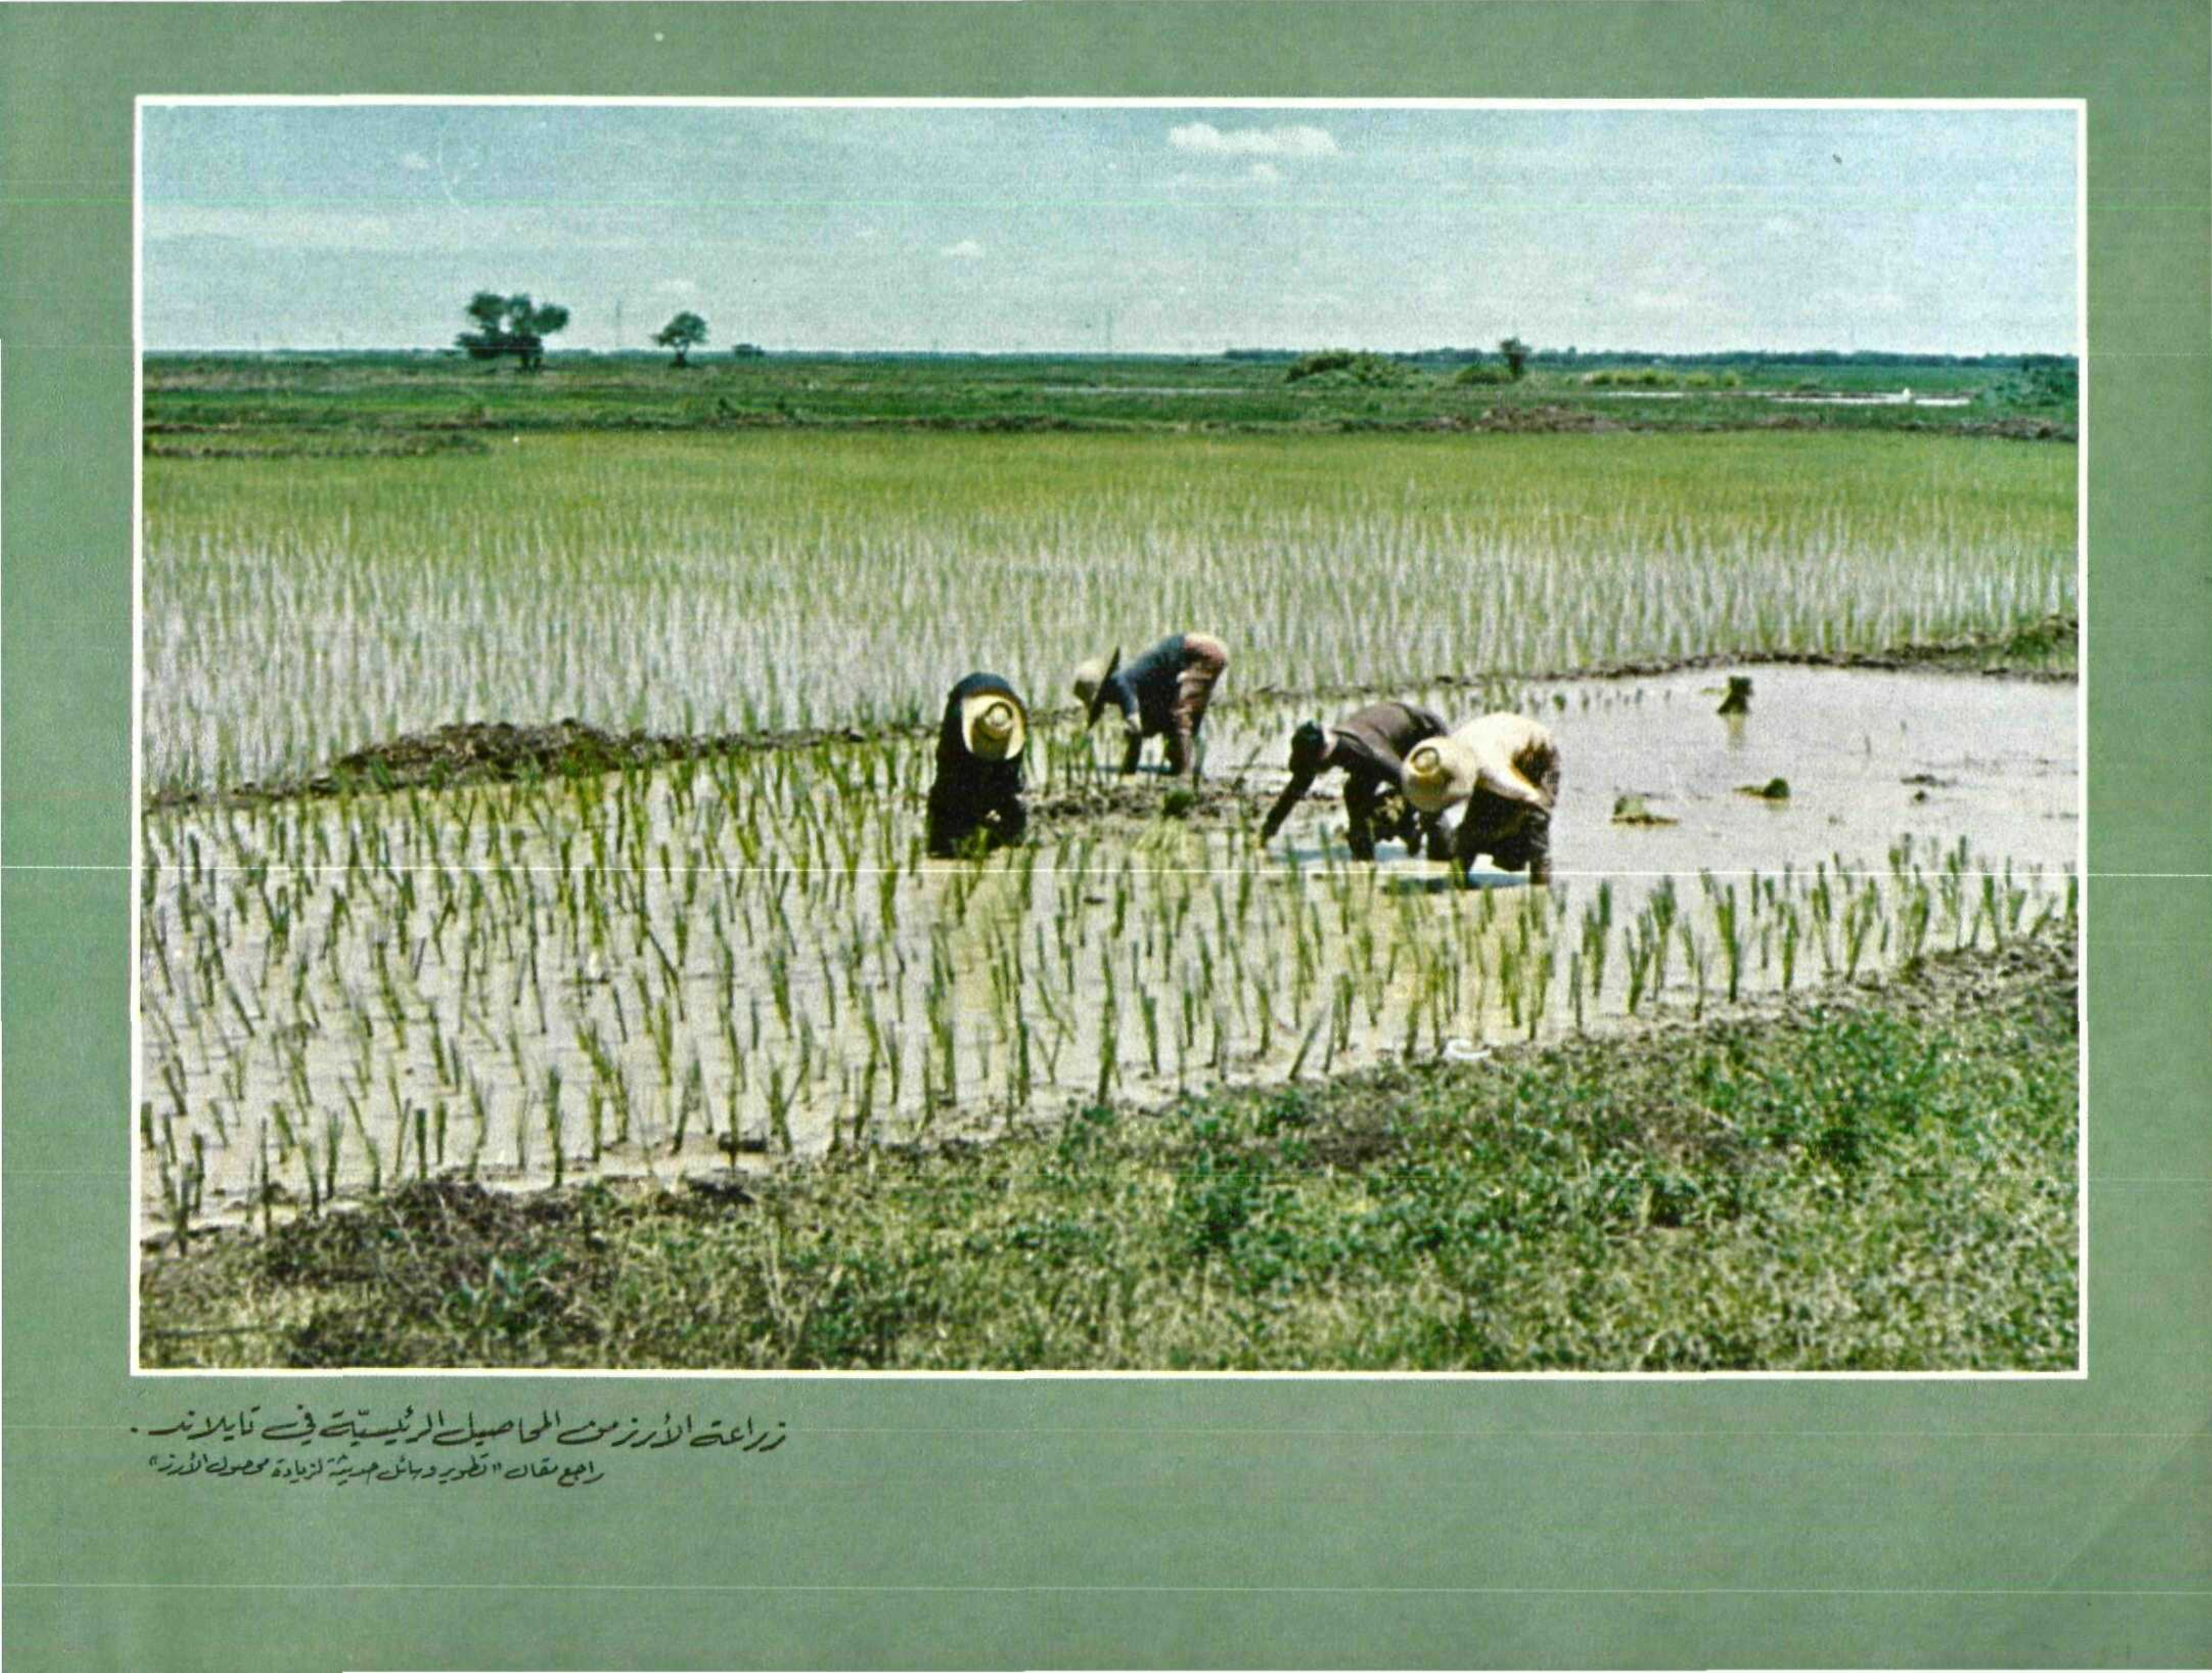 زراعة الأرز من المحاصيل الرئيسيّة في تايلاند .
راجع مقال "تطوير وسائل حديثة لزيادة محصول الأرز"